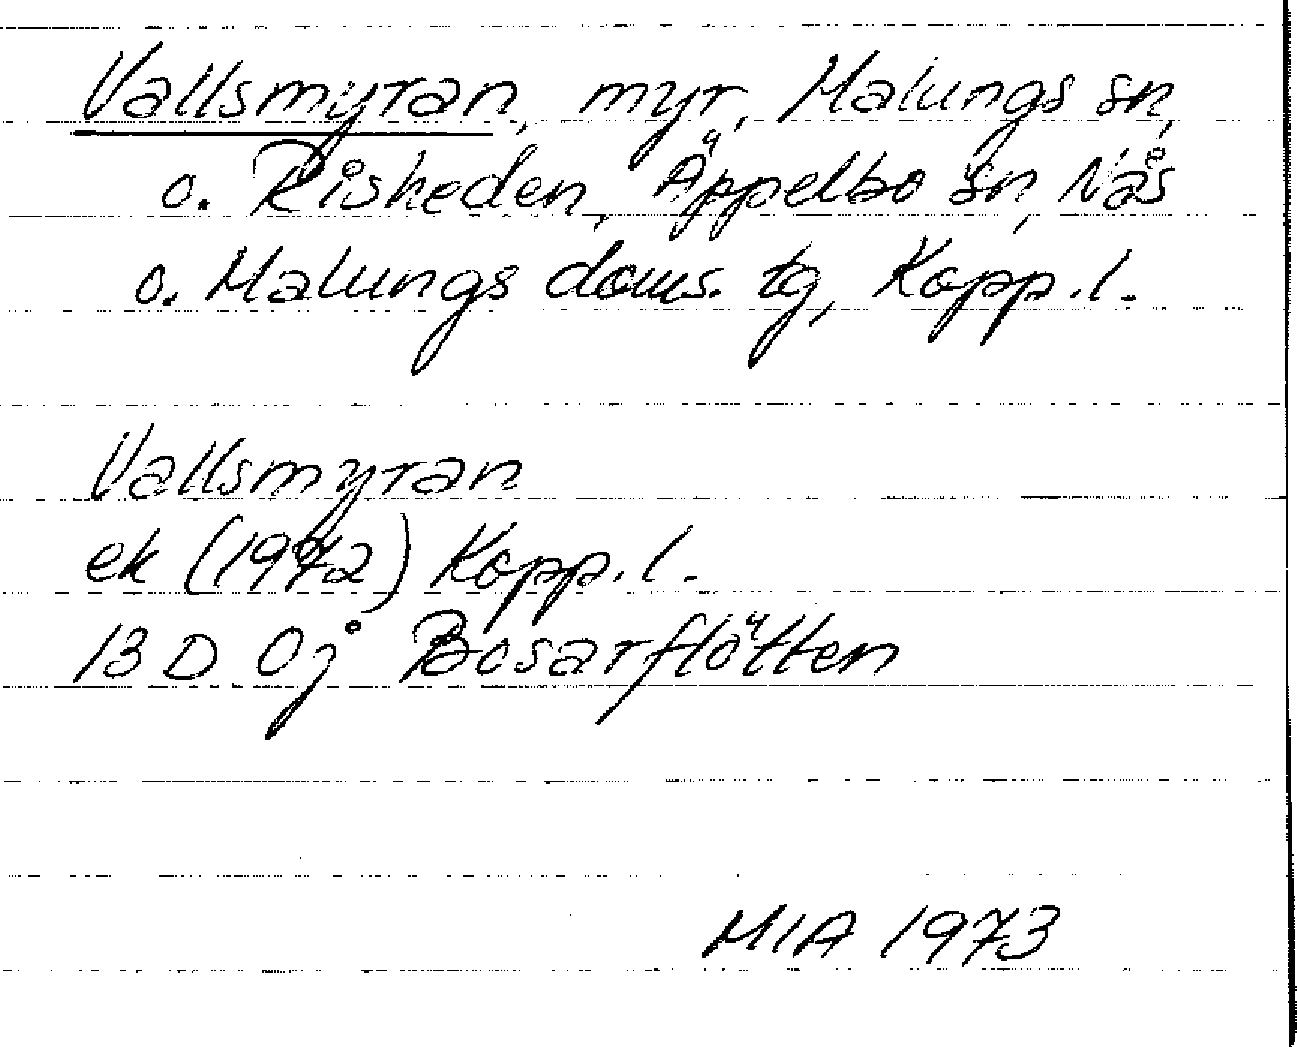 Vallsmyran, myr, Malungs sn,
o. Risheden, Äppelbo sn, Nås
o. Malungs doms. tg, Kopp. l.
Vallsmyran
ek (1972) Kopp. l.
13 D 0j Bosarflötten
MIA 1973